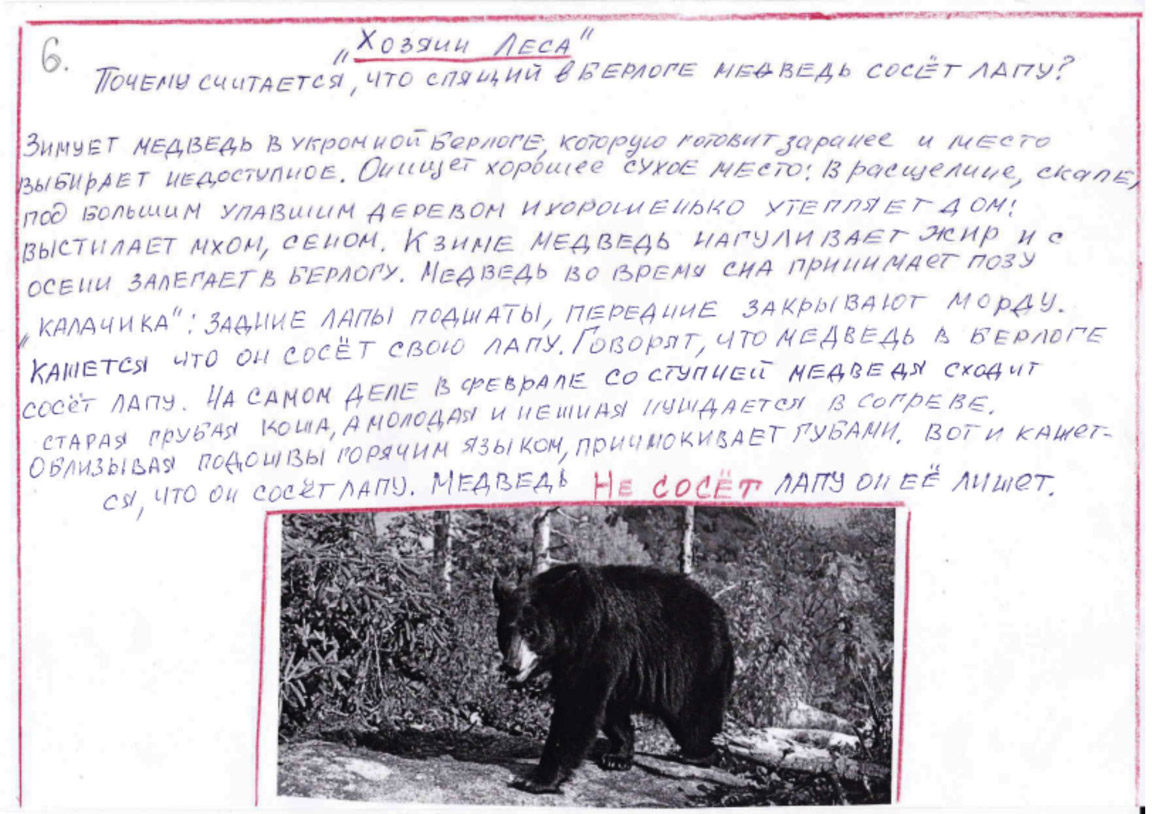 6.
„Хозяин Леса“
Почему считается, что спящий в берлоге медведь сосёт лапу?
Зимует медведь в укромной берлоге, которую готовит заранее и место
выбирает недоступное. Он ищет хорошее сухое место: в расщелине, скале,
под большим упавшим деревом и хорошенько утепляет дом:
выстилает мхом, сеном. К зиме медведь нагуливает жир и с
осени залегает в берлогу. Медведь во время сна принимает позу
„калачика“: задние лапы поджаты, передние закрывают морду.
Кажется что он сосёт свою лапу. Говорят, что медведь в берлоге
сосёт лапу. На самом деле в феврале со ступней медведя сходит
старая грубая кожа, а молодая и нежная нуждается в согреве.
Облизывая подошвы горячим языком, причмокивает губами. Вот и кажет-
ся, что он сосёт лапу. Медведь не сосёт лапу он её лижет.